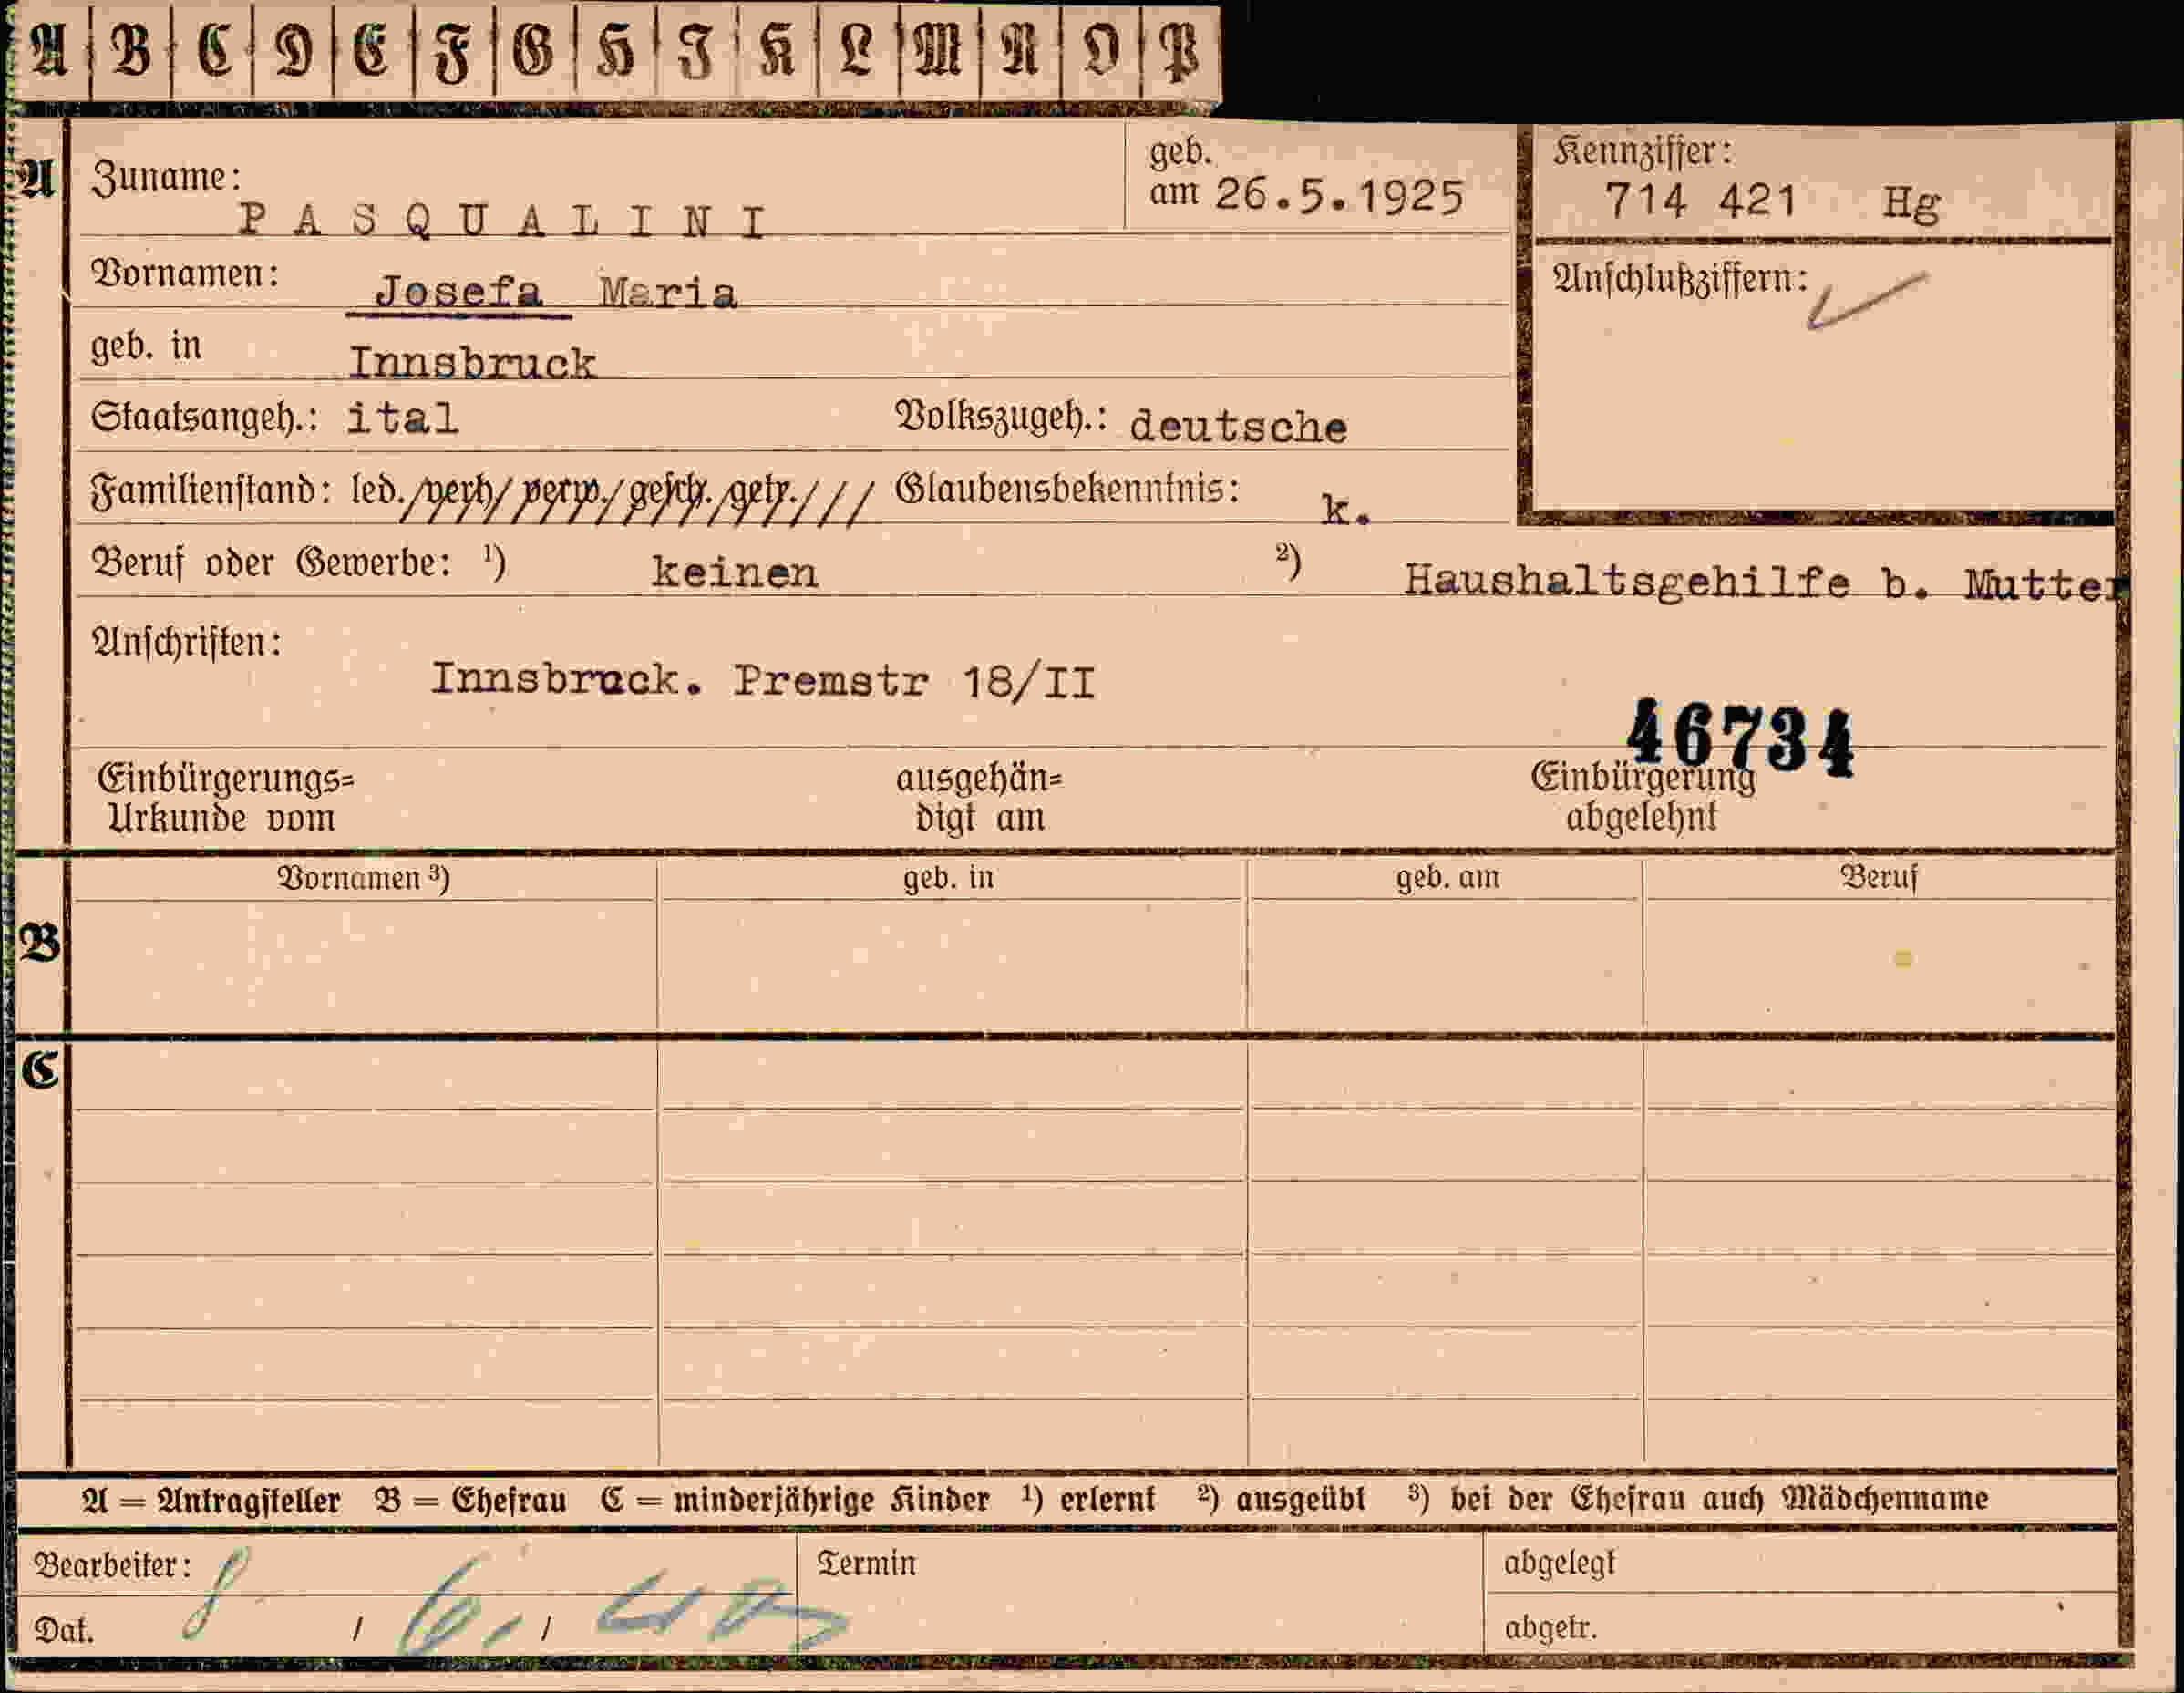 A B C D E F G H I K L M N O P
A Zuname: PASQUALINI geb. am 26.5.1925 Kennziffer: 714 421 Hg
Vornamen: Josefa Maria Anschlußziffern:
geb. in Innsbruck
Staatsangeh.: ital Volkszugeh.: deutsche
Familienstand: led./verh/verw./gesch./getr./// Glaubensbekenntnis: k.
Beruf oder Gewerbe: ¹) keinen ²) Haushaltsgehilfe b. Mutter
Anschriften:
Innsbruck. Premstr 18/II
46734
Einbürgerungs= ausgehän= Einbürgerung
Urkunde vom digt am abgelehnt
Vornamen ³) geb. in geb. am Beruf
B
C
A = Antragsteller B = Ehefrau C = minderjährige Kinder ¹) erlernt ²) ausgeübt ³) bei der Ehefrau auch Mädchenname
Bearbeiter: Termin abgelegt
Dat. 8 / 6. / abgetr.